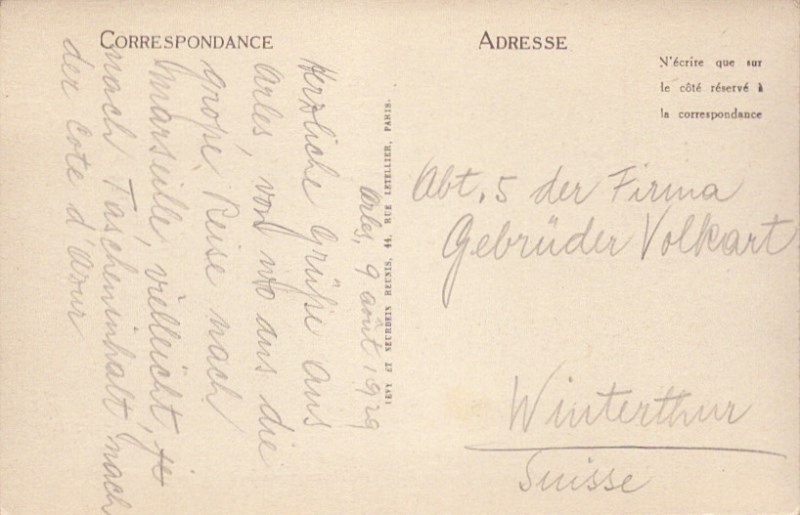 CORRESPONDANCE
ADRESSE
N'écrire que sur
le côté réservé à
la correspondance
Arles, 9 août 1929
Herzliche Grüße aus
Arles, von wo aus die
große Reise nach
Marseille, vielleicht, je
nach Tascheninhalt nach
der Cote d'Azur
LEVY ET NEURDEIN REUNIS, 44, RUE LETELLIER, PARIS.
Abt. 5 der Firma
Gebrüder Volkart
Winterthur
Suisse